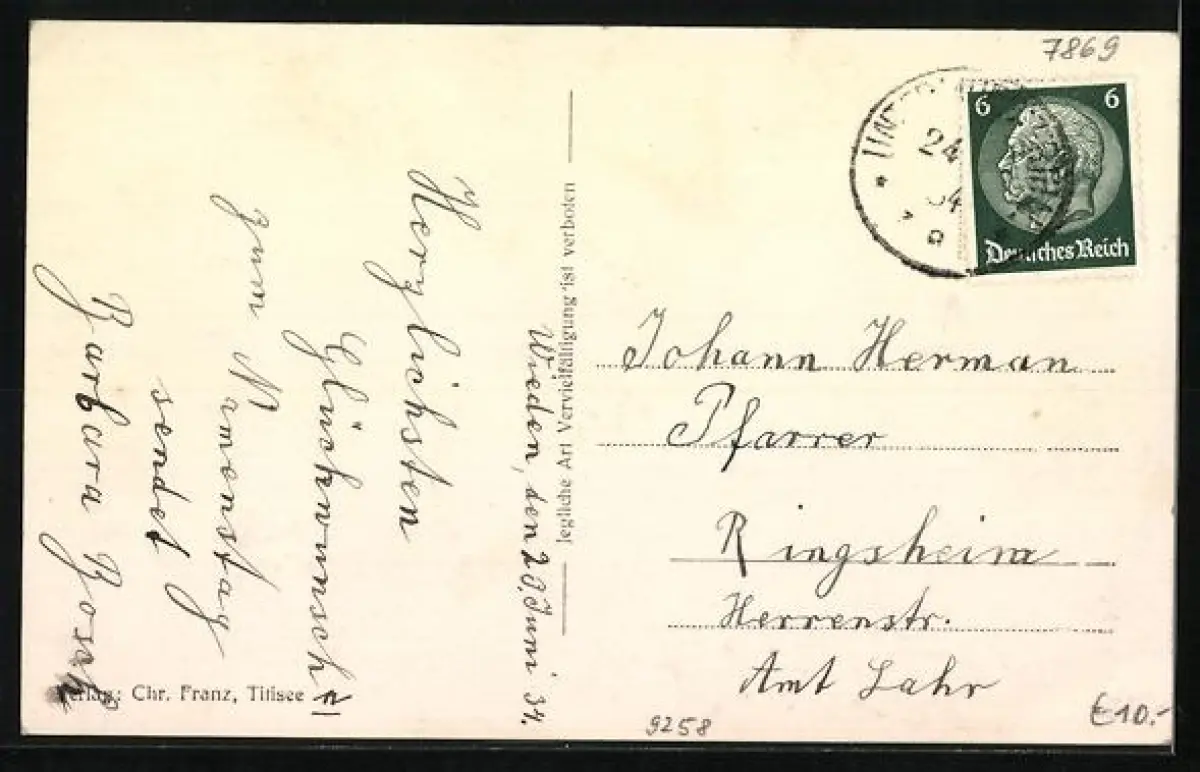 7869
6 6
Deutsches Reich
24
34
Wieden, den 23. Juni 34.
Herzlichsten
Glückwunsch
zum Namenstag
sendet
Barbara Bosch
jegliche Art Vervielfältigung ist verboten
Johann Herman
Pfarrer
Ringsheim
Herrenstr.
Amt Lahr
Verlag: Chr. Franz, Titisee
9258
€10.-